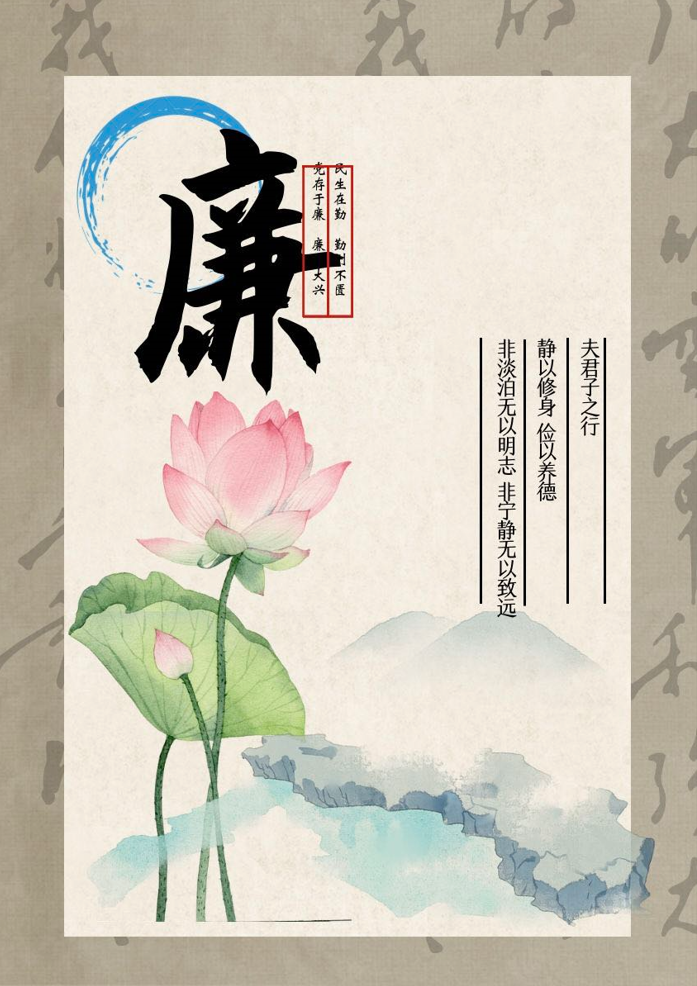 廉
民生在勤 勤则不匮
党存于廉 廉 大兴
夫君子之行
静以修身 俭以养德
非淡泊无以明志 非宁静无以致远